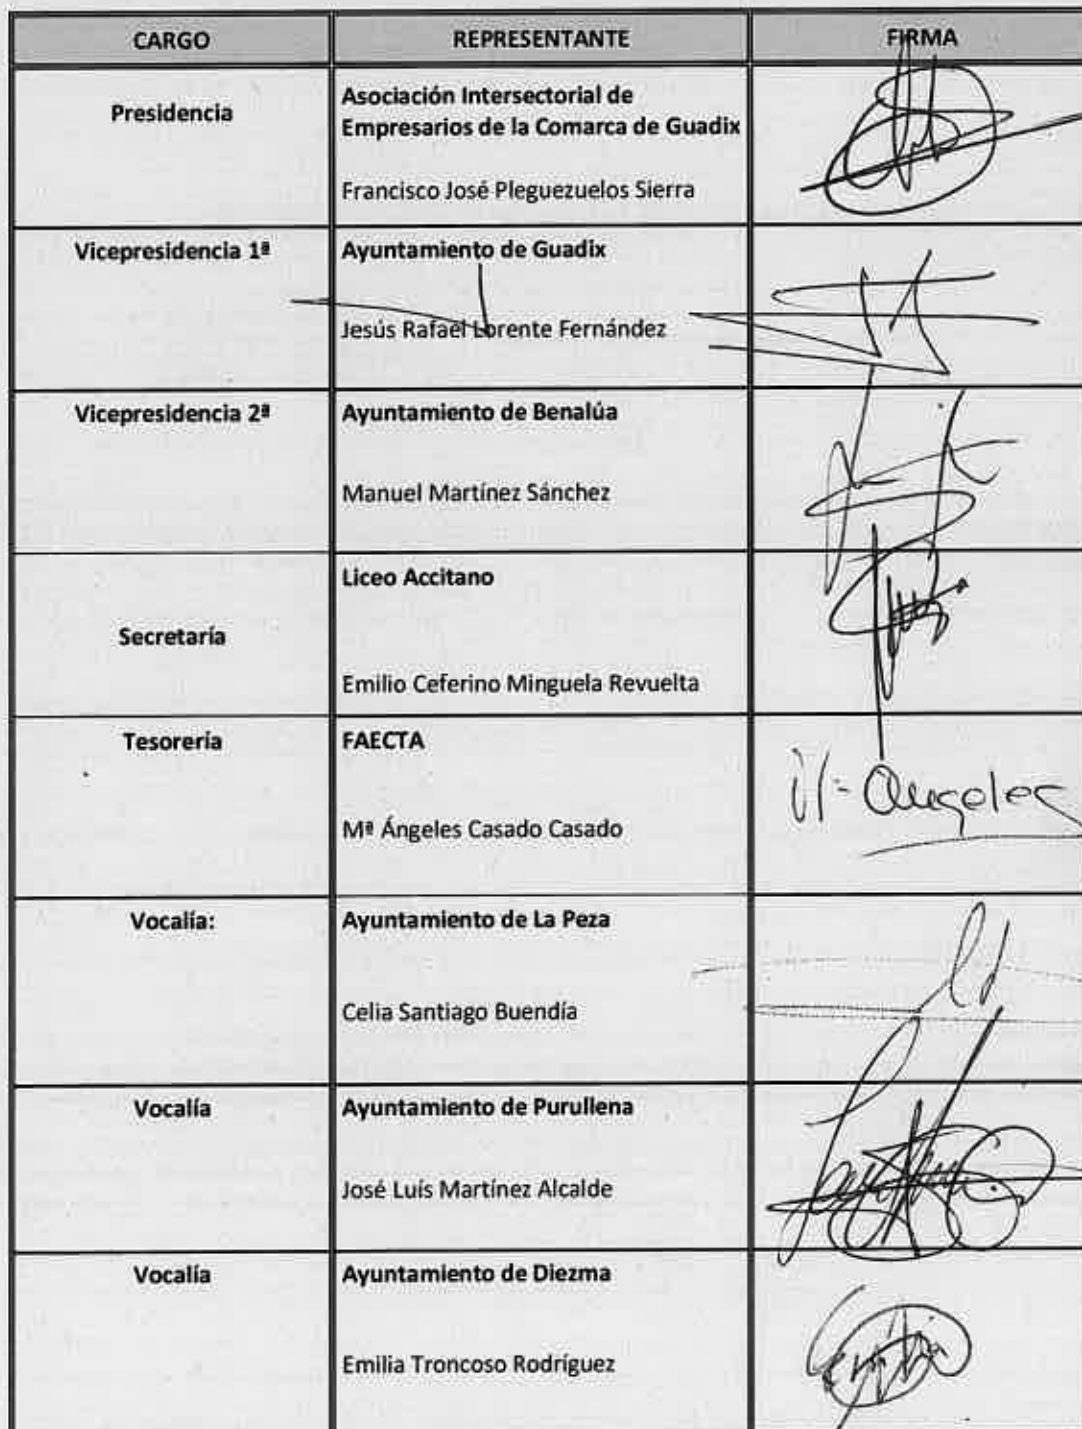 CARGO REPRESENTANTE FIRMA
Presidencia
Asociación Intersectorial de
Empresarios de la Comarca de Guadix
Francisco José Pleguezuelos Sierra
Vicepresidencia 1ª Ayuntamiento de Guadix
Jesús Rafael Lorente Fernández
Vicepresidencia 2ª Ayuntamiento de Benalúa
Manuel Martínez Sánchez
Liceo Accitano
Secretaría
Emilio Ceferino Minguela Revuelta
Tesorería FAECTA
Mª Ángeles Casado Casado
Angeles
Vocalía: Ayuntamiento de La Peza
Celia Santiago Buendía
Vocalía Ayuntamiento de Purullena
José Luís Martínez Alcalde
Vocalía Ayuntamiento de Diezma
Emilia Troncoso Rodríguez